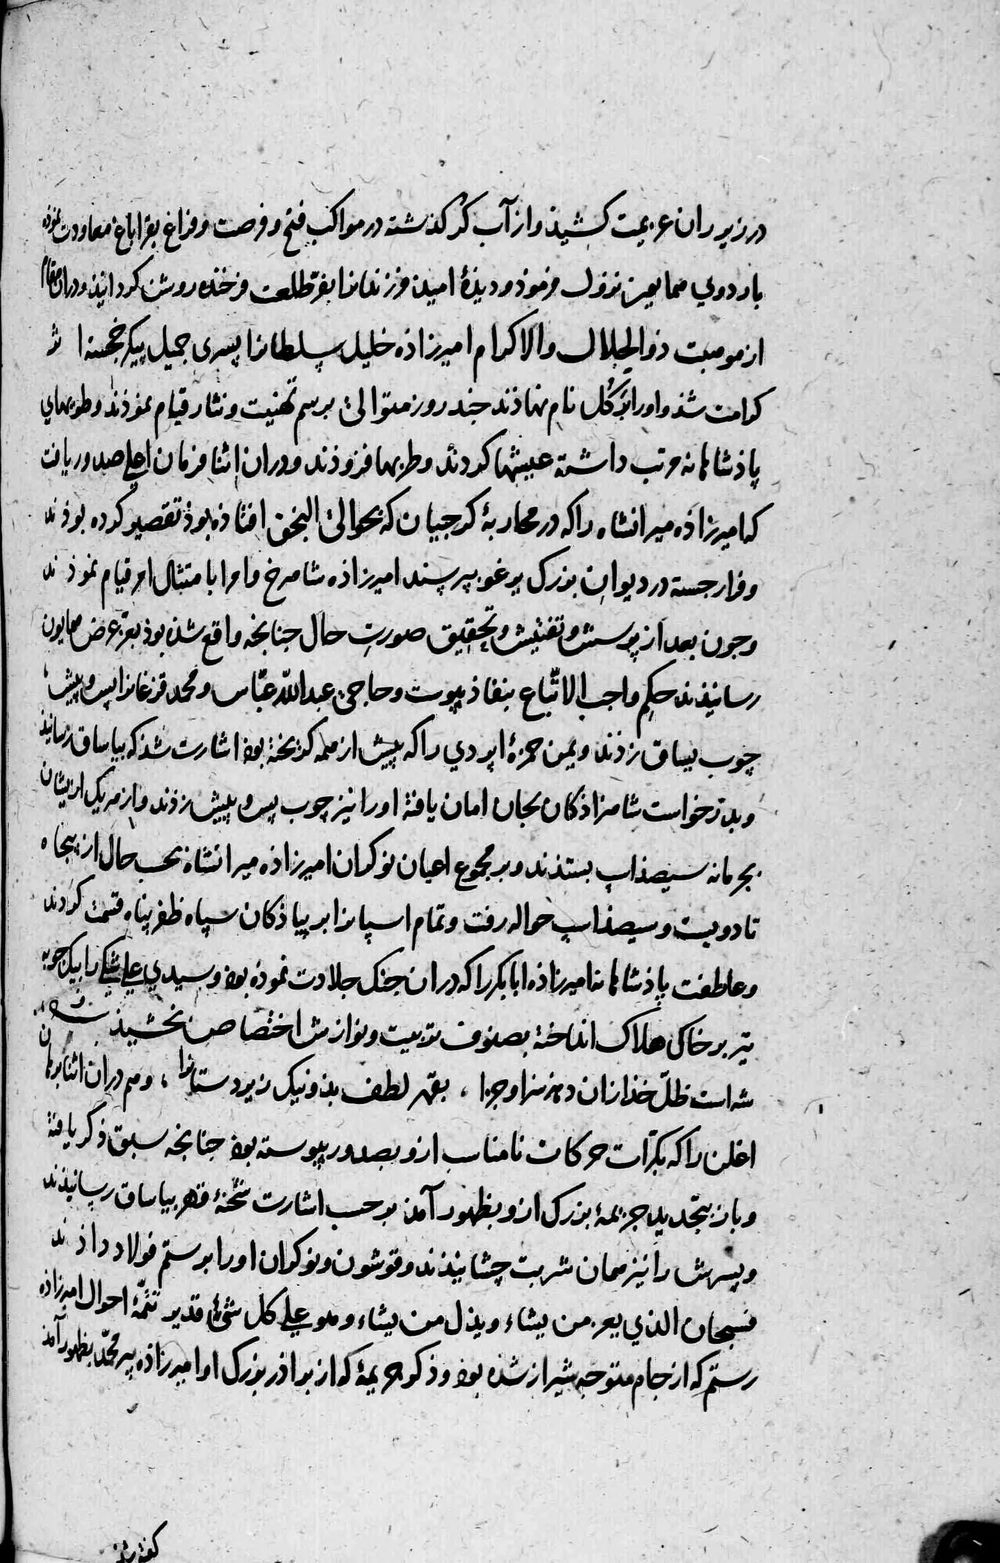 در زیر ران عزیمت کشیذ و از آب کُر کذشته در مواکب فتح و فرصت و فراغ بقراباغ معاودت نموذه
باردوی همایون نزول فرموذ و دیذهٔ امیذ فرزندانرا بفرّ طلعت فرخنده روشن کردانیذ و دران مقام
از موهبت ذوالجلال والاکرام امیرزاذه خلیل سلطانرا پسری جمیل پیکر خجسته اثر
کرامت شذ و اورا برکُل نام نهاذند جند روز متوالی برسم تهنیت و نثار قیام نموذند و طویهای
پاذشاهانه مرتب داشته عیشها کردند و طربها فزوذند و دران اثنا فرمان اعلی صدور یافت
که امیرزاذه میرانشاه را که در محاربهٔ کرجیان که بحوالی النجق افتاذه بوذ تقصیر کرده بوذند
و فرار جسته در دیوان بزرک یرغو بپرسند امیرزاذه شاهرخ و امرا بامتثال امر قیام نموذند
و جون بعد از پرسش و تفتیش و تحقیق صورت حال جنانجه واقع شذه بوذ بعزّ عرض همایون
رسانیذند حکم واجب الاتّباع بنفاذ پیوست و حاجی عبدالله عبّاس و محمد قزغانرا پس و پیش
چوب یساق زذند و یمن حمزهٔ اپردی را که پیش از همه کریخته بوذ اشارت شذ که بیاساق رسانیذ
و بدرخواست شاهزاذکان بجان امان یافته اورا نیز چوب پس و پیش زذند و از هریک ازیشان
بجرمانه سیصذ اسپ بستذند و بر مجموع اعیان نوکران امیرزاذه میرانشاه بحسب حال از پنجاه
تا دویست و سیصذ اسپ حواله رفت و تمام اسپانرا بر پیاذکان سپاه ظفرپناه قسمت کردند
و عاطفت پاذشاهانه امیرزاذه ابابکر را که دران جنک جلادت نموذه بوذ و سیدی علی شکی را بیک جوبه
تیر بر خاک هلاک انداخته بصنوف تربیت و نوازش اختصاص بخشیذ
شه است ظلّ خذا زان دهذ سزا و جزا ، بقهر لطف بذ و نیک زیردستانرا ، و هم دران اثنا برهان
اغلن را که بکرّات حرکات نامناسب ازو بصدور پیوسته بوذ جنانجه سبق ذکر یافته
و باز بتجدید جریمهٔ بزرک ازو بظهور آمذ بر حسب اشارت شحنهٔ قهر بیاساق رسانیذند
و پسرش را نیز همان شربت چشانیذند و قوشون و نوکران اورا برستم فولاد داذند
فسبحان الذی یعز من یشاء ویذل من یشاء وهو علی کل شیء قدیر تتمّهٔ احوال امیرزاذه
رستم که از جام متوجه شیراز شذه بوذ و ذکر جریمهٔ که از براذر بزرک او امیرزاذه پیر محمّد بظهور آمذ